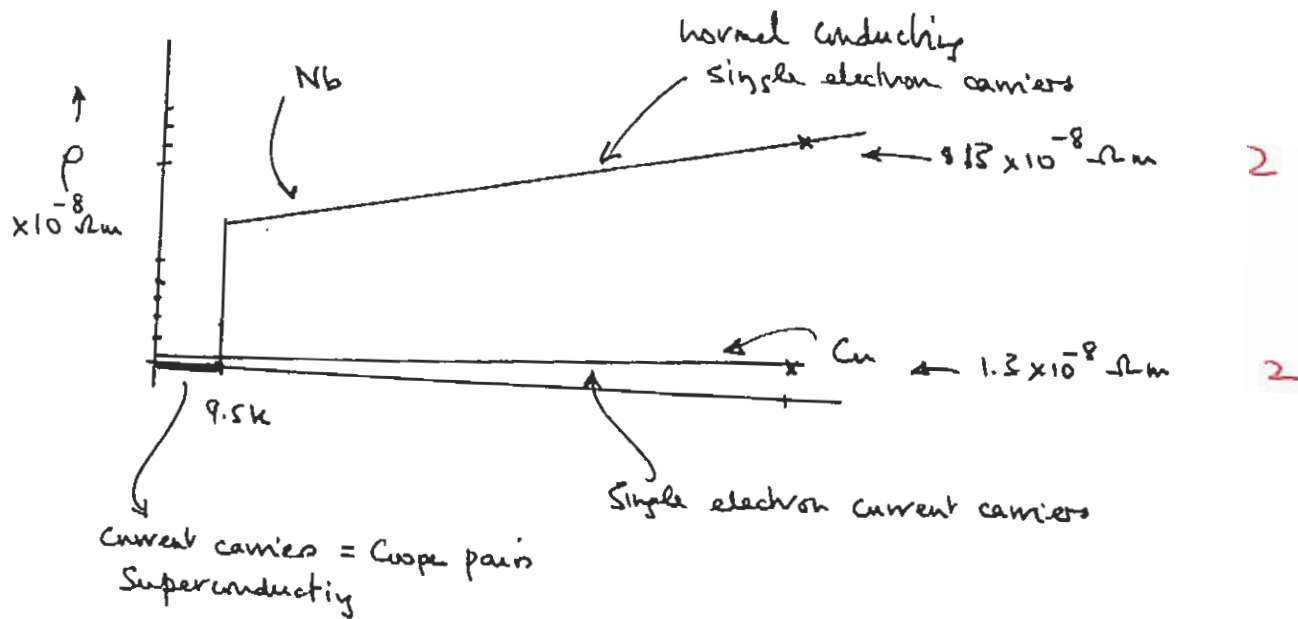 normal conducting
single electron carriers
Nb
ρ
×10⁻⁸ Ωm
×10⁻⁸ Ωm
2
Cu
1.3 ×10⁻⁸ Ωm
2
9.5K
Single electron current carriers
Current carriers = Coope pairs
Superconductig